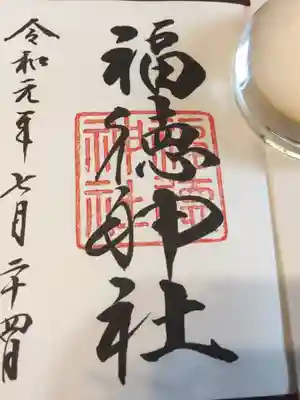 福徳神社
福徳神社
令和元年七月二十四日